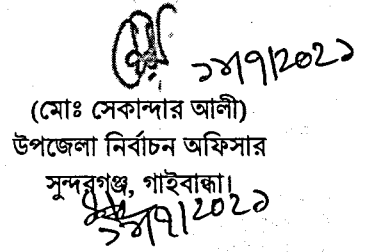 ১৮/৭/২০২১
(মোঃ সেকান্দার আলী)
উপজেলা নির্বাচন অফিসার
সুন্দরগঞ্জ, গাইবান্ধা।
১৮/৭/২০২১